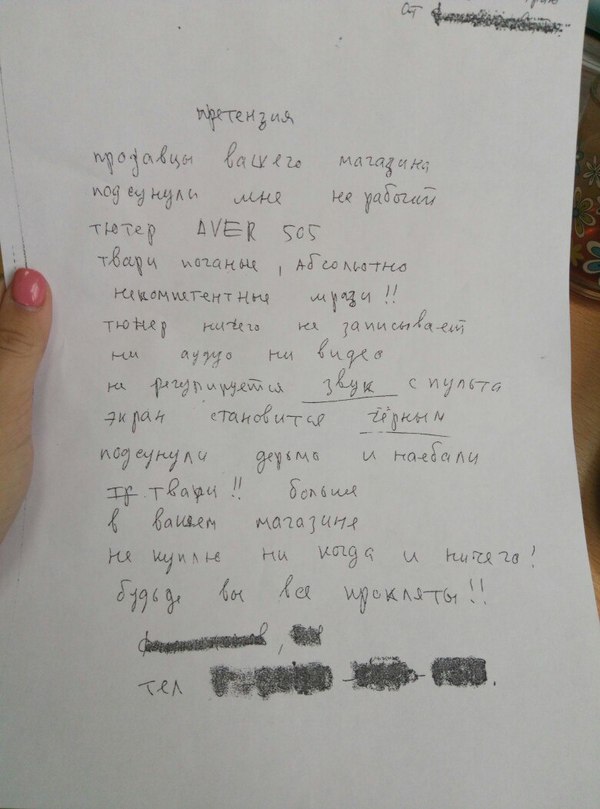 от
претензия
продавцы вашего магазина
подсунули мне не рабочий
тютер AVER 505
твари поганые, абсолютно
некомпетентные мрази!!
тюнер ничего не записывает
ни аудуо ни видео
не регулируется звук с пульта
экран становится чёрным
подсунули дерьмо и наебали
твари!! больше
в вашем магазине
не куплю ни когда и ничего!
будьде вы все прокляты!!
тел